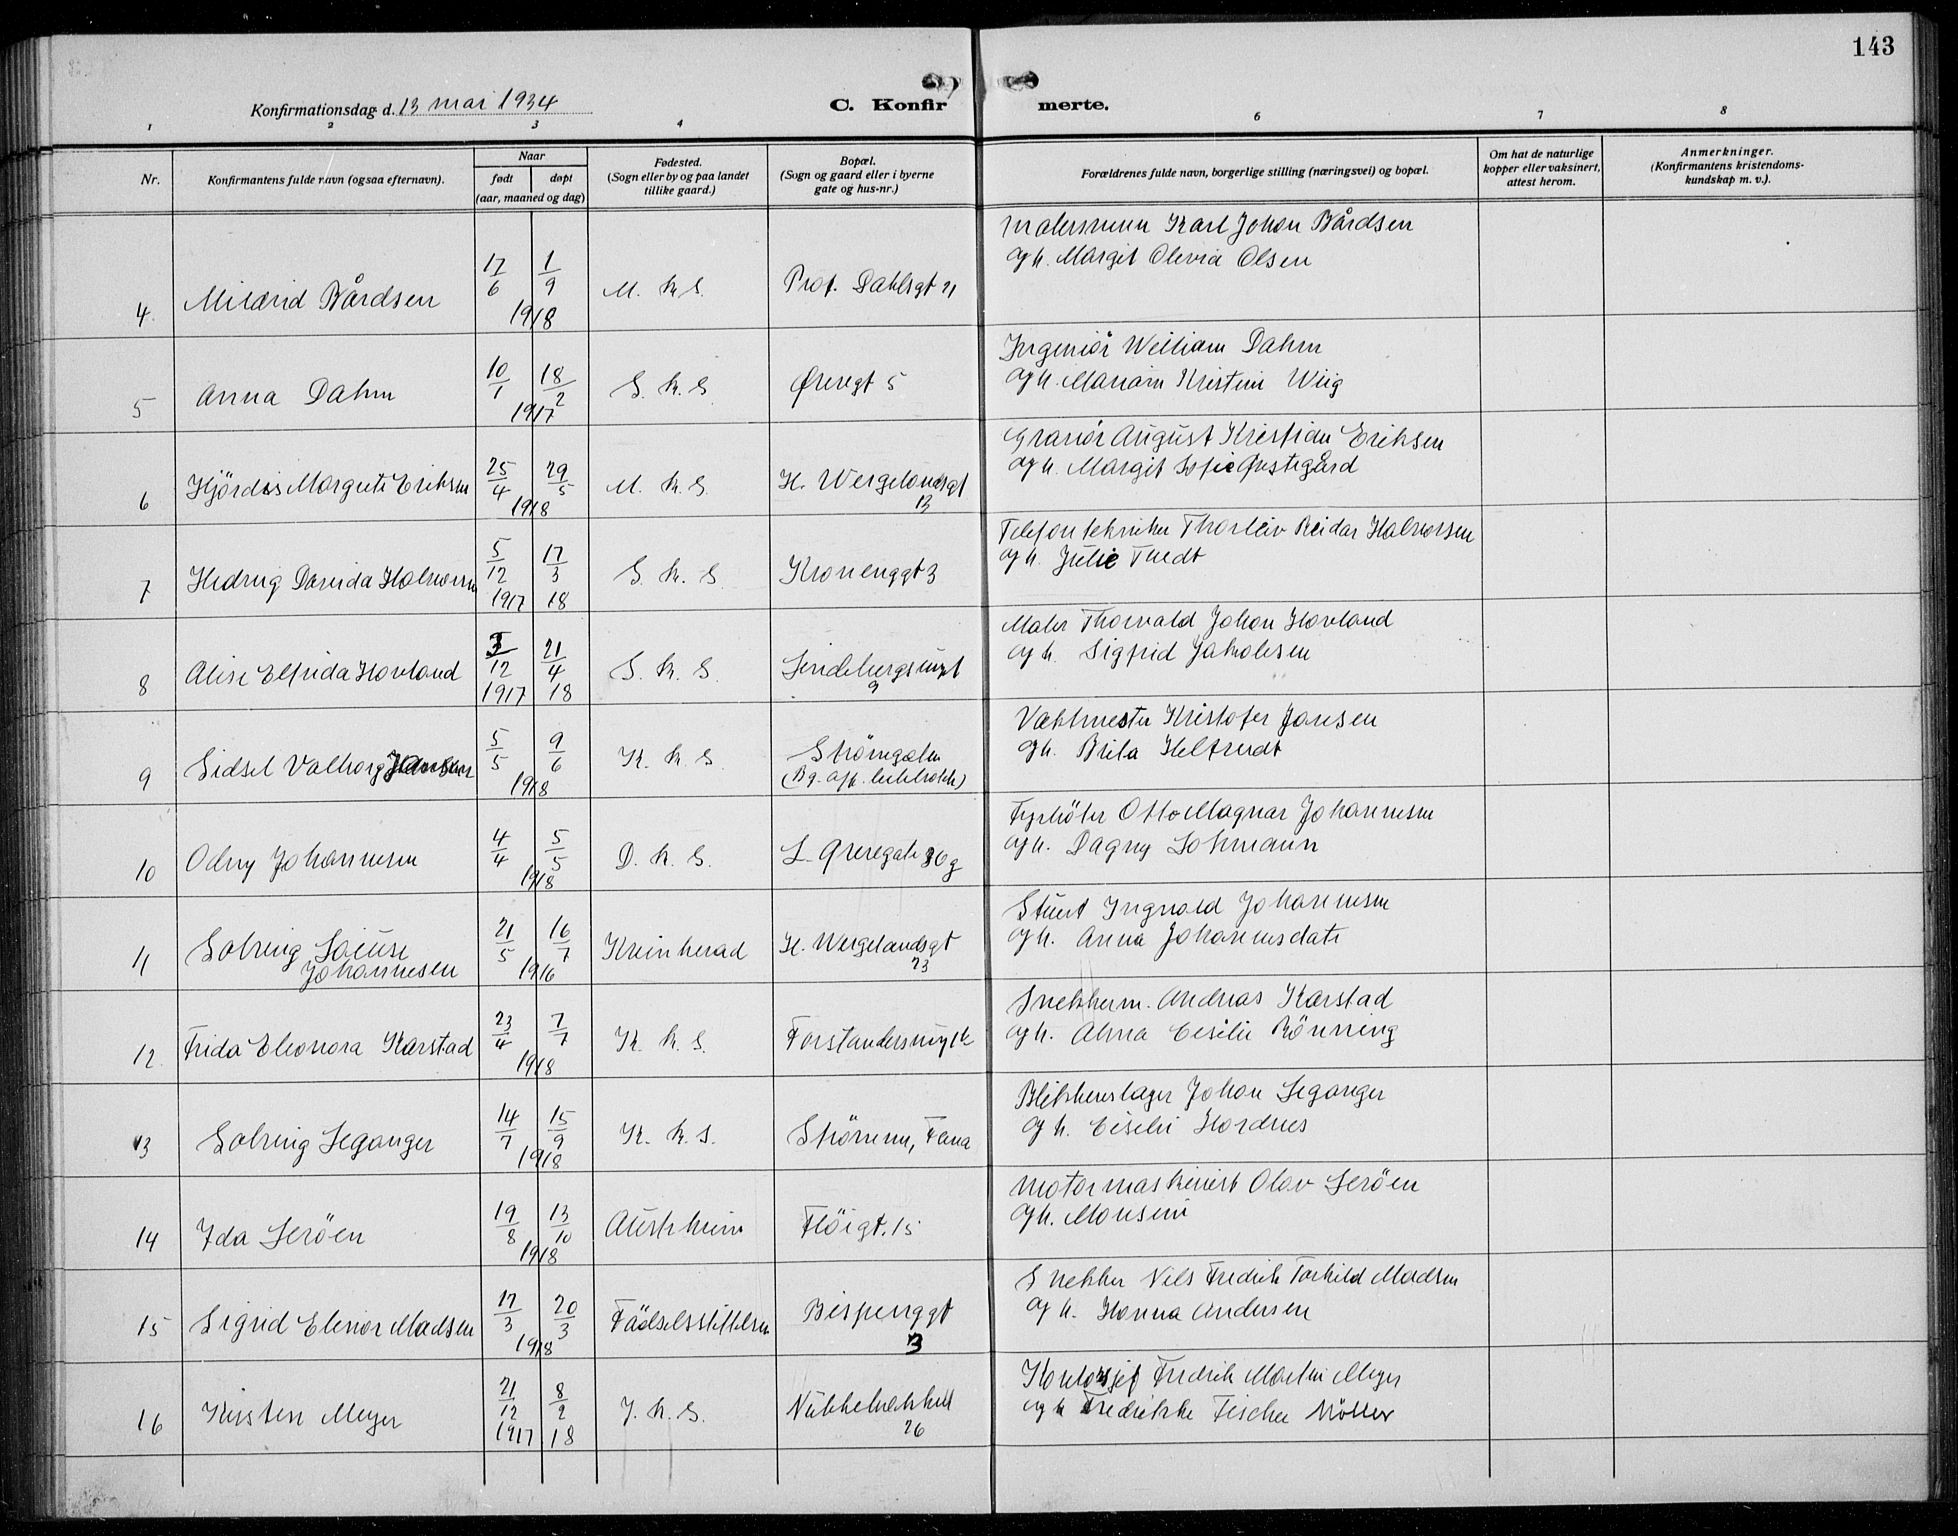 143
Konfirmationsdag d. 13 mai 1934
C. Konfir merte.
1 2 3 4 5 6 7 8
Nr.
Konfirmantens fulde navn (ogsaa efternavn).
Naar
født døpt
(aar, maaned og dag)
Fødested.
(Sogn eller by og paa landet
tillike gaard.)
Bopæl.
(Sogn og gaard eller i byerne
gate og hus-nr.)
Forældrenes fulde navn, borgerlige stilling (næringsvei) og bopæl.
Om hat de naturlige
kopper eller vaksinert,
attest herom.
Anmerkninger.
(Konfirmantens kristendoms-
kundskap m. v.).
4 Mildrid Bårdsen 17/6 1/9 1918 M. k. S. Prof. Dahlsgt 21
Malersvenn Karl Johan Bårdsen
og h. Margit Olivia Olsen
5 Anna Dahm 10/1 18/2 1917 S. k. S Øvregt 5
Ingeniör William Dahm
og h. Kristini Wiig
6 Hjördis Margrete Eriksen 25/4 29/5 1918 M. k. S. H. Wergelandsgt
13
Gravör August Kristian Eriksen
og h. Margit Sofie Østegård
7 Davida Halvorsen 5/12 1917 17/3 18 S. k. S Kronenggt 3
Telefontekniker Thorleiv Reidar Halvorsen
og h. Julie Tvedt
8 Alise Elfrida Hovland 12 1917 21/4 18 S. k. S.
9
Maler Thorvald Johan Hovland
og h. Sigfrid Jakobsen
9 Sidsel Valborg Jansen 5/5 9/6 1918 K. k. S
Vaktmester Kristofer Jansen
og h. Brita
10 Odny Johannesen 4/4 5/5 1918 D. k. S. L. Øvregate 36 g
Fyrböter Otto Magnar Johannesen
og h. Dagny Lohmann
11 Solveig Lovise
Johannesen 21/5 16/7 1916 Kvinherad H. Wergelandsgt
23
Stuert Ingvald Johannesen
og h. Anna Johannesdatr
12 Frida Eleonora Karstad 23/4 7/7 1918 K. k. S.
Snekkerm. Andreas Karstad
og h. Alma Cesilie Rönning
13 Solveig Leganger 14/7 15/9 1918 K. k. S. Strömmen, Fana
Blikkenslager Johan Leganger
og h. Cisilie Hordnes
14 Ida Seröen 19/8 13/10 1918 Austrheim Flöigt. 15
Motormaskinist Olav Seröen
og h. Monsine
15 Sigrid Elinor Madsen 17/3 20/3 1918 Födselsstiftelsen Bispenggt
13
Snekker Nils Fredrik Torkild Madsen
og h. Hanna Andersen
16 Kirsten Meyer 21/12 1917 8/2 18 J. k. S. Nubbebakken
26
Kontorsjef Fredrik Martin Meyer
og h Fredrikke Fischer Möller